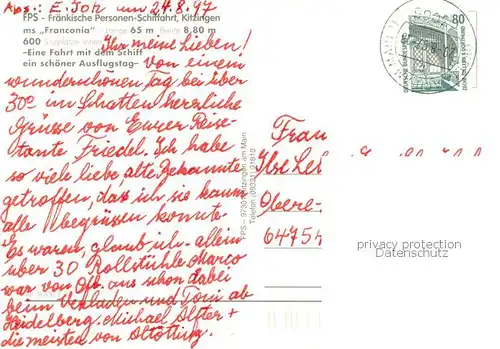 Abs.: E. Joh um 24.8.97
FPS - Fränkische Personen-Schiffahrt, Kitzingen
ms „Franconia" - Länge 65 m Breite 8,80 m
600 Sitzplätze innen
-Eine Fahrt mit dem Schiff
ein schöner Ausflugstag-
Ihr meine Lieben!
Von einem
wunderschönen Tag bei über
30° im Schatten herzliche
Grüsse von Eurer Reise-
tante Friedel. Ich habe
so viele liebe, alte Bekannte
getroffen, das ich sie kaum
alle begrüssen konnte.
Es waren, glaub ich - allein
über 30 Rollstühle. Marco
war von Ofb. aus schon dabei
beim Verladen und Toni ab
Heidelberg. Michael Alfter +
die meisten von Altötting.
FPS - 9730 Kitzingen am Main
Telefon (09321) 91810
80
DEUTSCHE BUNDESPOST
Frau
Ilse Lei
Obere-
64754
privacy protection
Datenschutz